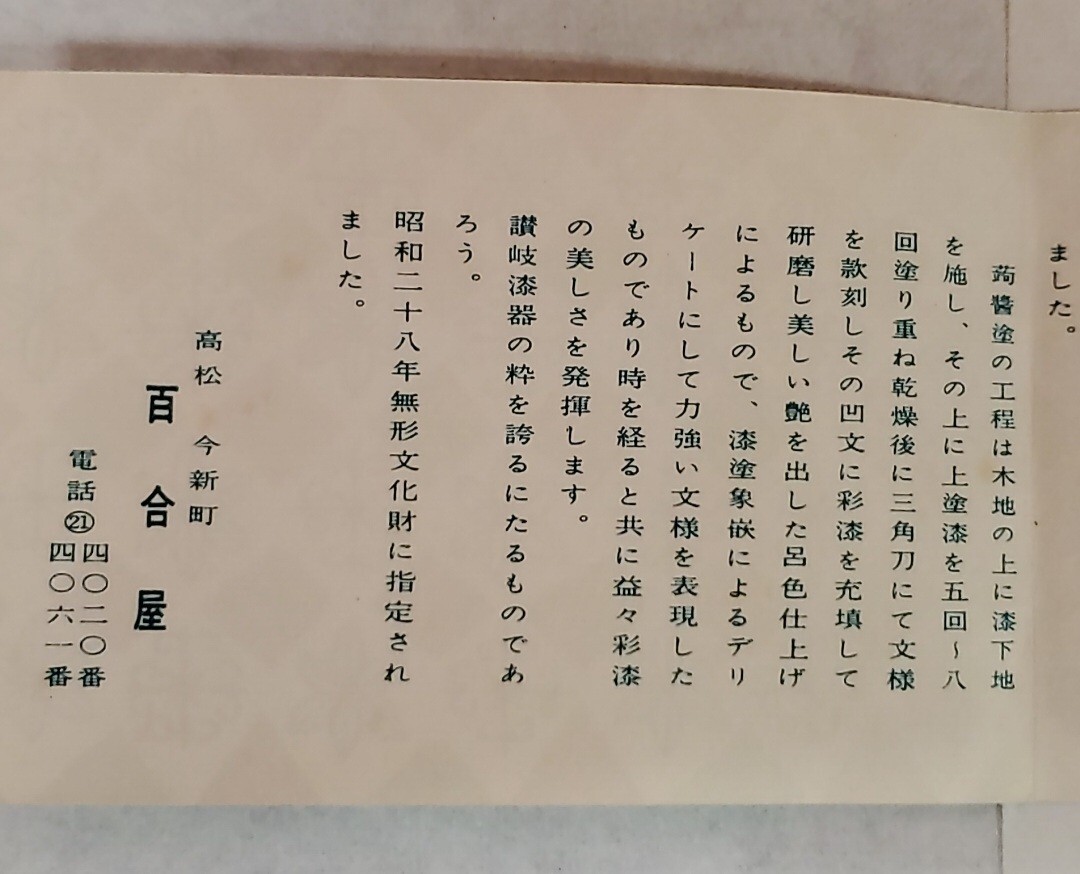 ました。
蒟醬塗の工程は木地の上に漆下地
を施し、その上に上塗漆を五回～八
回塗り重ね乾燥後に三角刀にて文様
を款刻しその凹文に彩漆を充填して
研磨し美しい艶を出した呂色仕上げ
によるもので、漆塗象嵌によるデリ
ケートにして力強い文様を表現した
ものであり時を経ると共に益々彩漆
の美しさを発揮します。
讃岐漆器の粋を誇るにたるものであ
ろう。
昭和二十八年無形文化財に指定され
ました。
高松 今新町
百合屋
電話㉑四〇二〇番
四〇六一番